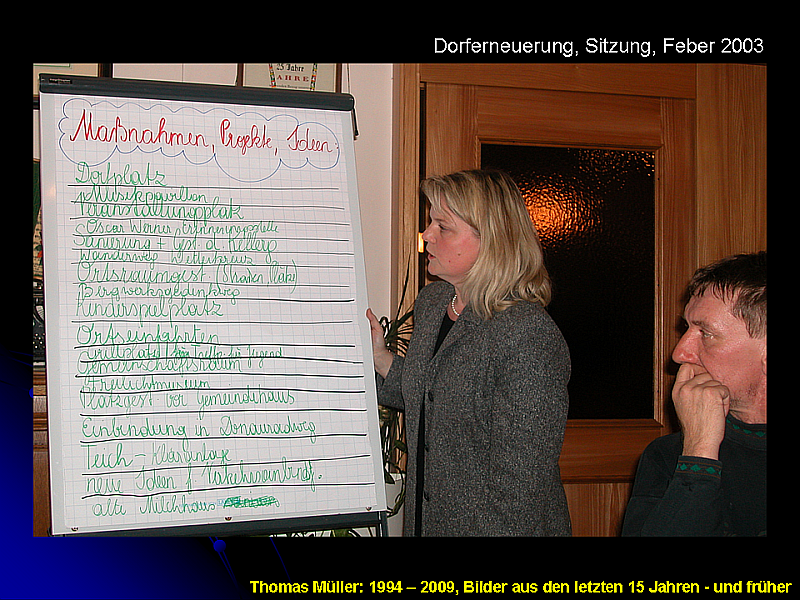 Dorferneuerung, Sitzung, Feber 2003
25 Jahre
AHRE
Maßnahmen, Projekte, Ideen:
Dorfplatz
Musikpavillon
Veranstaltungsplatz
Oscar Werner Erinnerungsstelle
Sanierung + Gest. d. Kellerg
Wanderweg Wetterkreuz
Ortsraumgest (Straßen, Plätze)
Kinderspielplatz
Ortseinfahrten
Grillplatz / Treffp. für Jugend
Gemeinschaftsraum
Freilichtmuseum
Platzgest vor Gemeindehaus
Einbindung in Donauradweg
Teich - Kläranlage
neue Ideen f
alte Milchhaus
Thomas Müller: 1994 – 2009, Bilder aus den letzten 15 Jahren - und früher